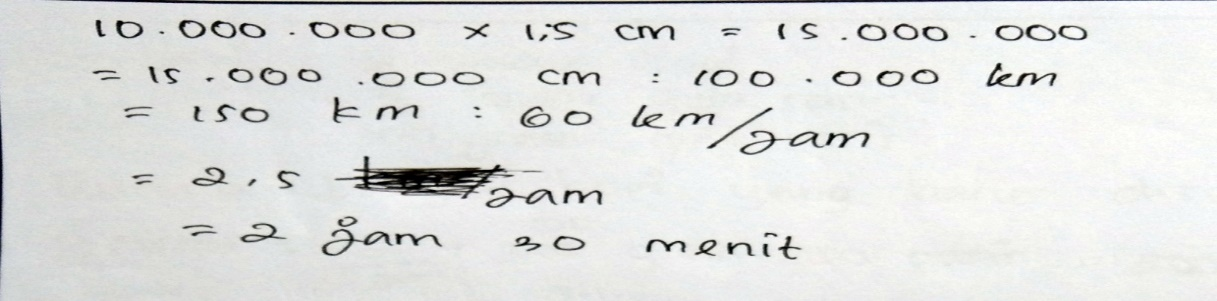 10.000.000 × 1,5 cm = 15.000.000
= 15.000.000 cm : 100.000 km
= 150 km : 60 km/jam
= 2,5 jam
= 2 jam 30 menit